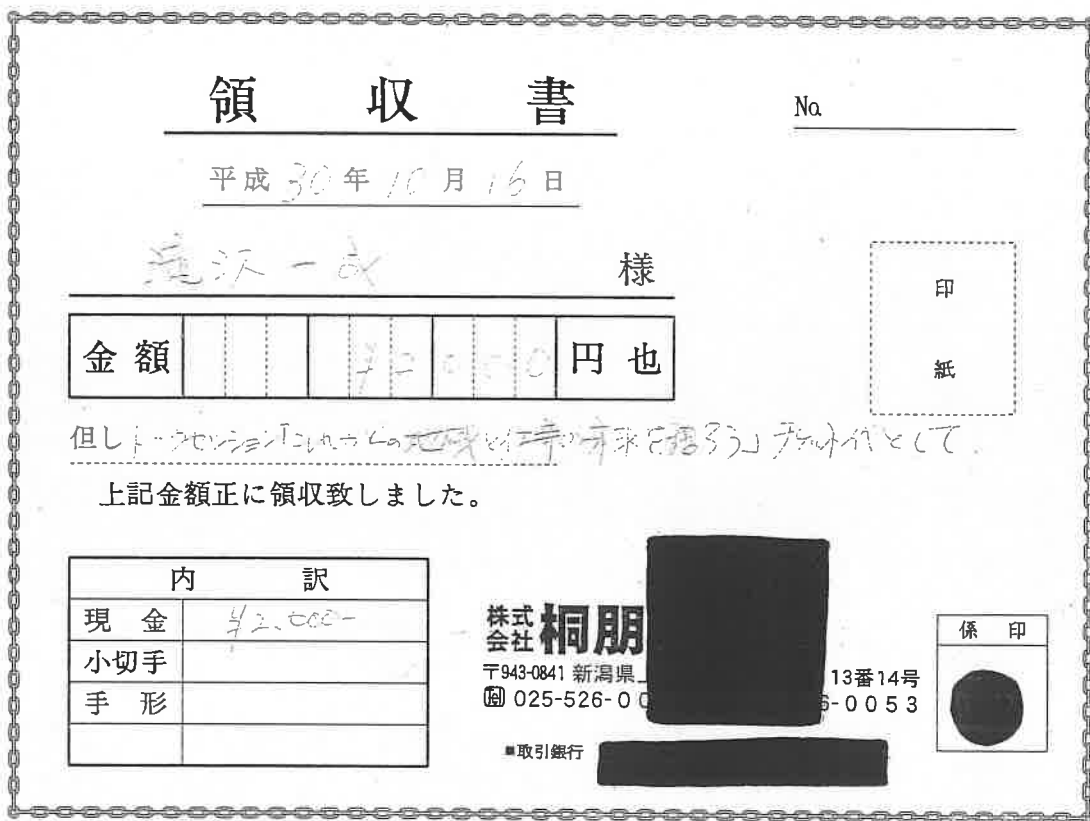 領収書
No.
平成30年10月16日
滝沢一成 様
印紙
金額 ¥2000 円也
但しトークセッション「これからの地域と仕事の未来を語ろう」チケット代として
上記金額正に領収致しました。
内訳
現金 ¥2,000-
小切手
手形
株式会社 桐朋
〒943-0841 新潟県 13番14号
025-526-00 6-0053
■取引銀行
係印